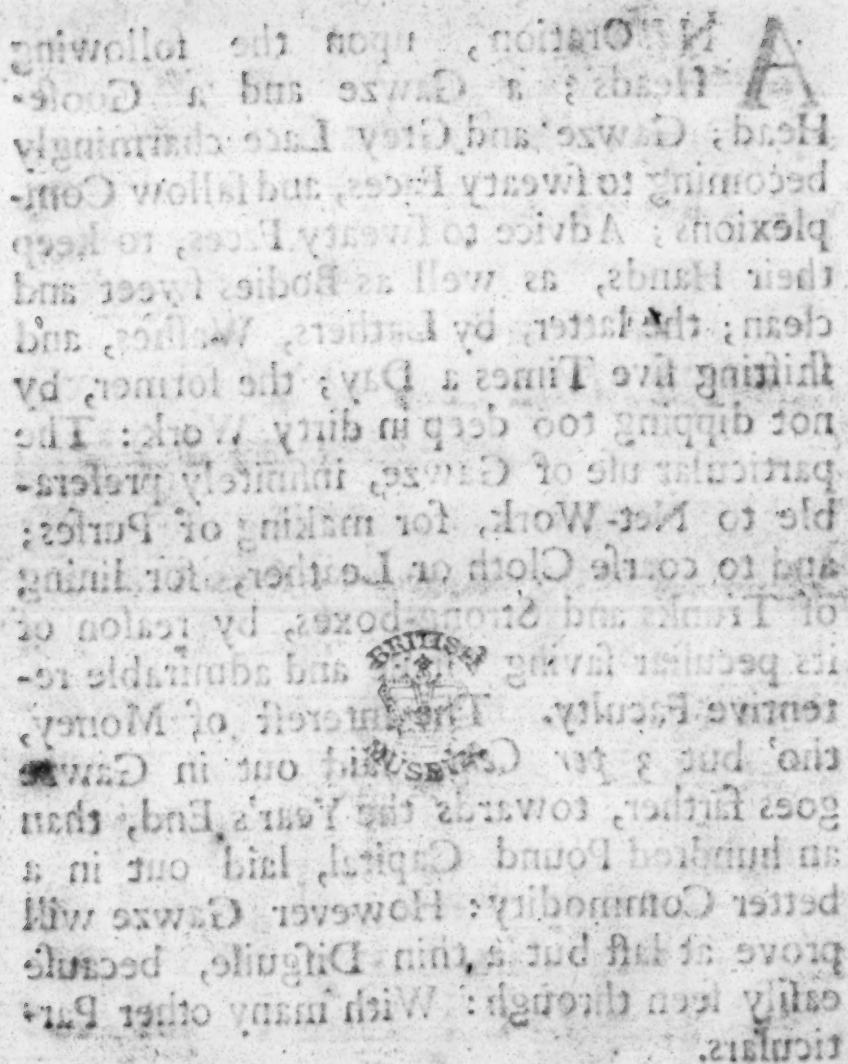 AN Oration, upon the following
Heads; a Gawze and a Gooſe-
Head; Gawze and Grey Lace charmingly
becoming to ſweaty Faces, and ſallow Com-
plexions; Advice to ſweaty Faces, to keep
their Hands, as well as Bodies ſweet and
clean; the latter, by Lathers, Waſhes, and
ſhifting five Times a Day; the former, by
not dipping too deep in dirty Work: The
particular uſe of Gawze, infinitely prefera-
ble to Net-Work, for making of Purſes;
and to coarſe Cloth or Leather, for lining
of Trunks and Strong-boxes, by reaſon of
its peculiar ſaving and admirable re-
tentive Faculty. The Intereſt of Money,
tho' but 3 per Cent. laid out in Gawze
goes farther, towards the Year's End, than
an hundred Pound Capital, laid out in a
better Commodity: However Gawze will
prove at laſt but a thin Diſguiſe, becauſe
eaſily ſeen through: With many other Par-
ticulars.
BRITISH
MUSEUM